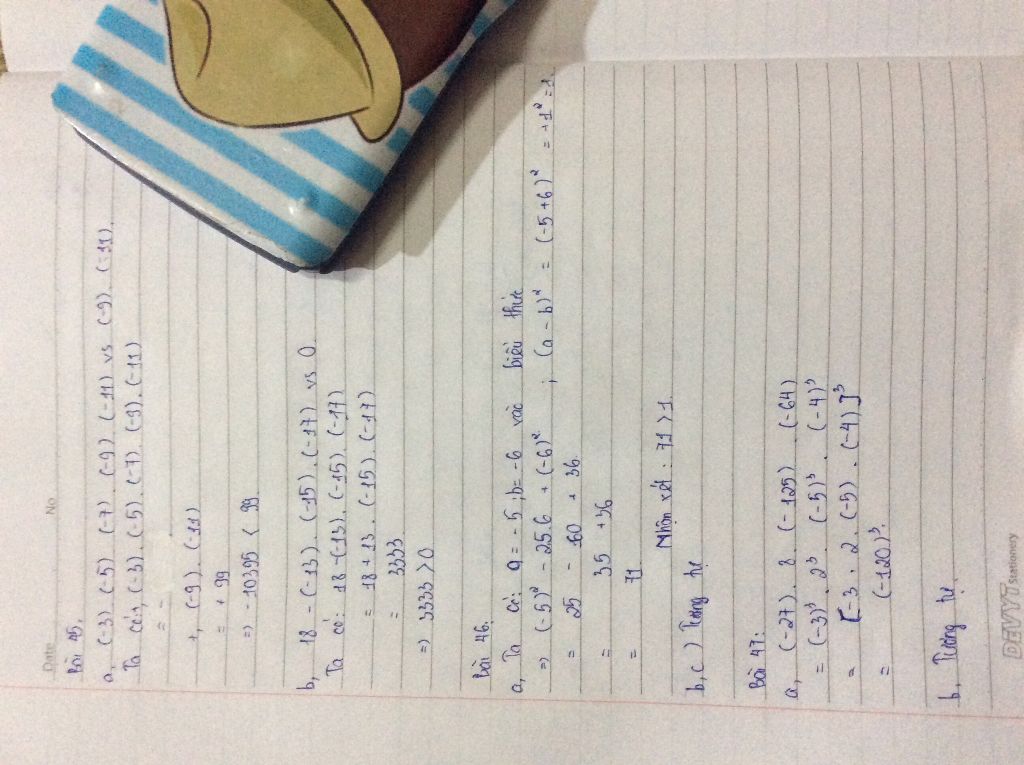 Date No
Bài 45.
a, (-3) (-5) (-7) (-9) (-11) vs (-9) (-11).
Ta có: +, (-3) . (-5) . (-7) . (-9) . (-11)
= -
+, (-9) . (-11)
= + 99
=> - 10395 < 99
b, 18 - (-13) . (-15) . (-17) vs 0
Ta có: 18 - (-13) . (-15) . (-17)
= 18 + 13 . (-15) . (-17)
= 3333
=> 3333 > 0
Bài 46.
a, Ta có: a = -5, b = -6 vào biểu thức
=> (-5)² - 25.6 + (-6)² ; (a - b)² = (-5 + 6)² = +1² = 1.
= 25 - 60 + 36
= 35 + 36
= 71
Nhận xét: 71 > 1
b, c) Tương tự
Bài 47:
a, (-27) . 8 . (-125) . (-64)
= (-3)³ . 2³ . (-5)³ . (-4)³
= [-3 . 2 . (-5) . (-4)]³
= (-120)³.
b, Tương tự.
DEVYT Stationery